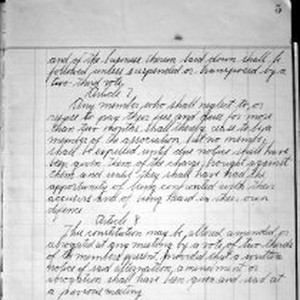 5
and of the business therein laid down shall be
followed unless suspended or transposed by a
two third vote
Article 7
Any member who shall neglect to, or
refuse to pay their fees and dues for more
than two months shall thereby cease to be a
member of the association but no member
shall be expelled until due notice shall have
been given them of the charge brought against
them and until they shall have had the
opportunity of being confronted with their
accusers and of being heard in their own
defence
Article 8
This constitution may be altered, amended or
abrogated at any meeting by a vote of two thirds
of the members present, provided that a written
notice of said alternation, amendment or
abrogation shall have been given and read at
a previous meeting